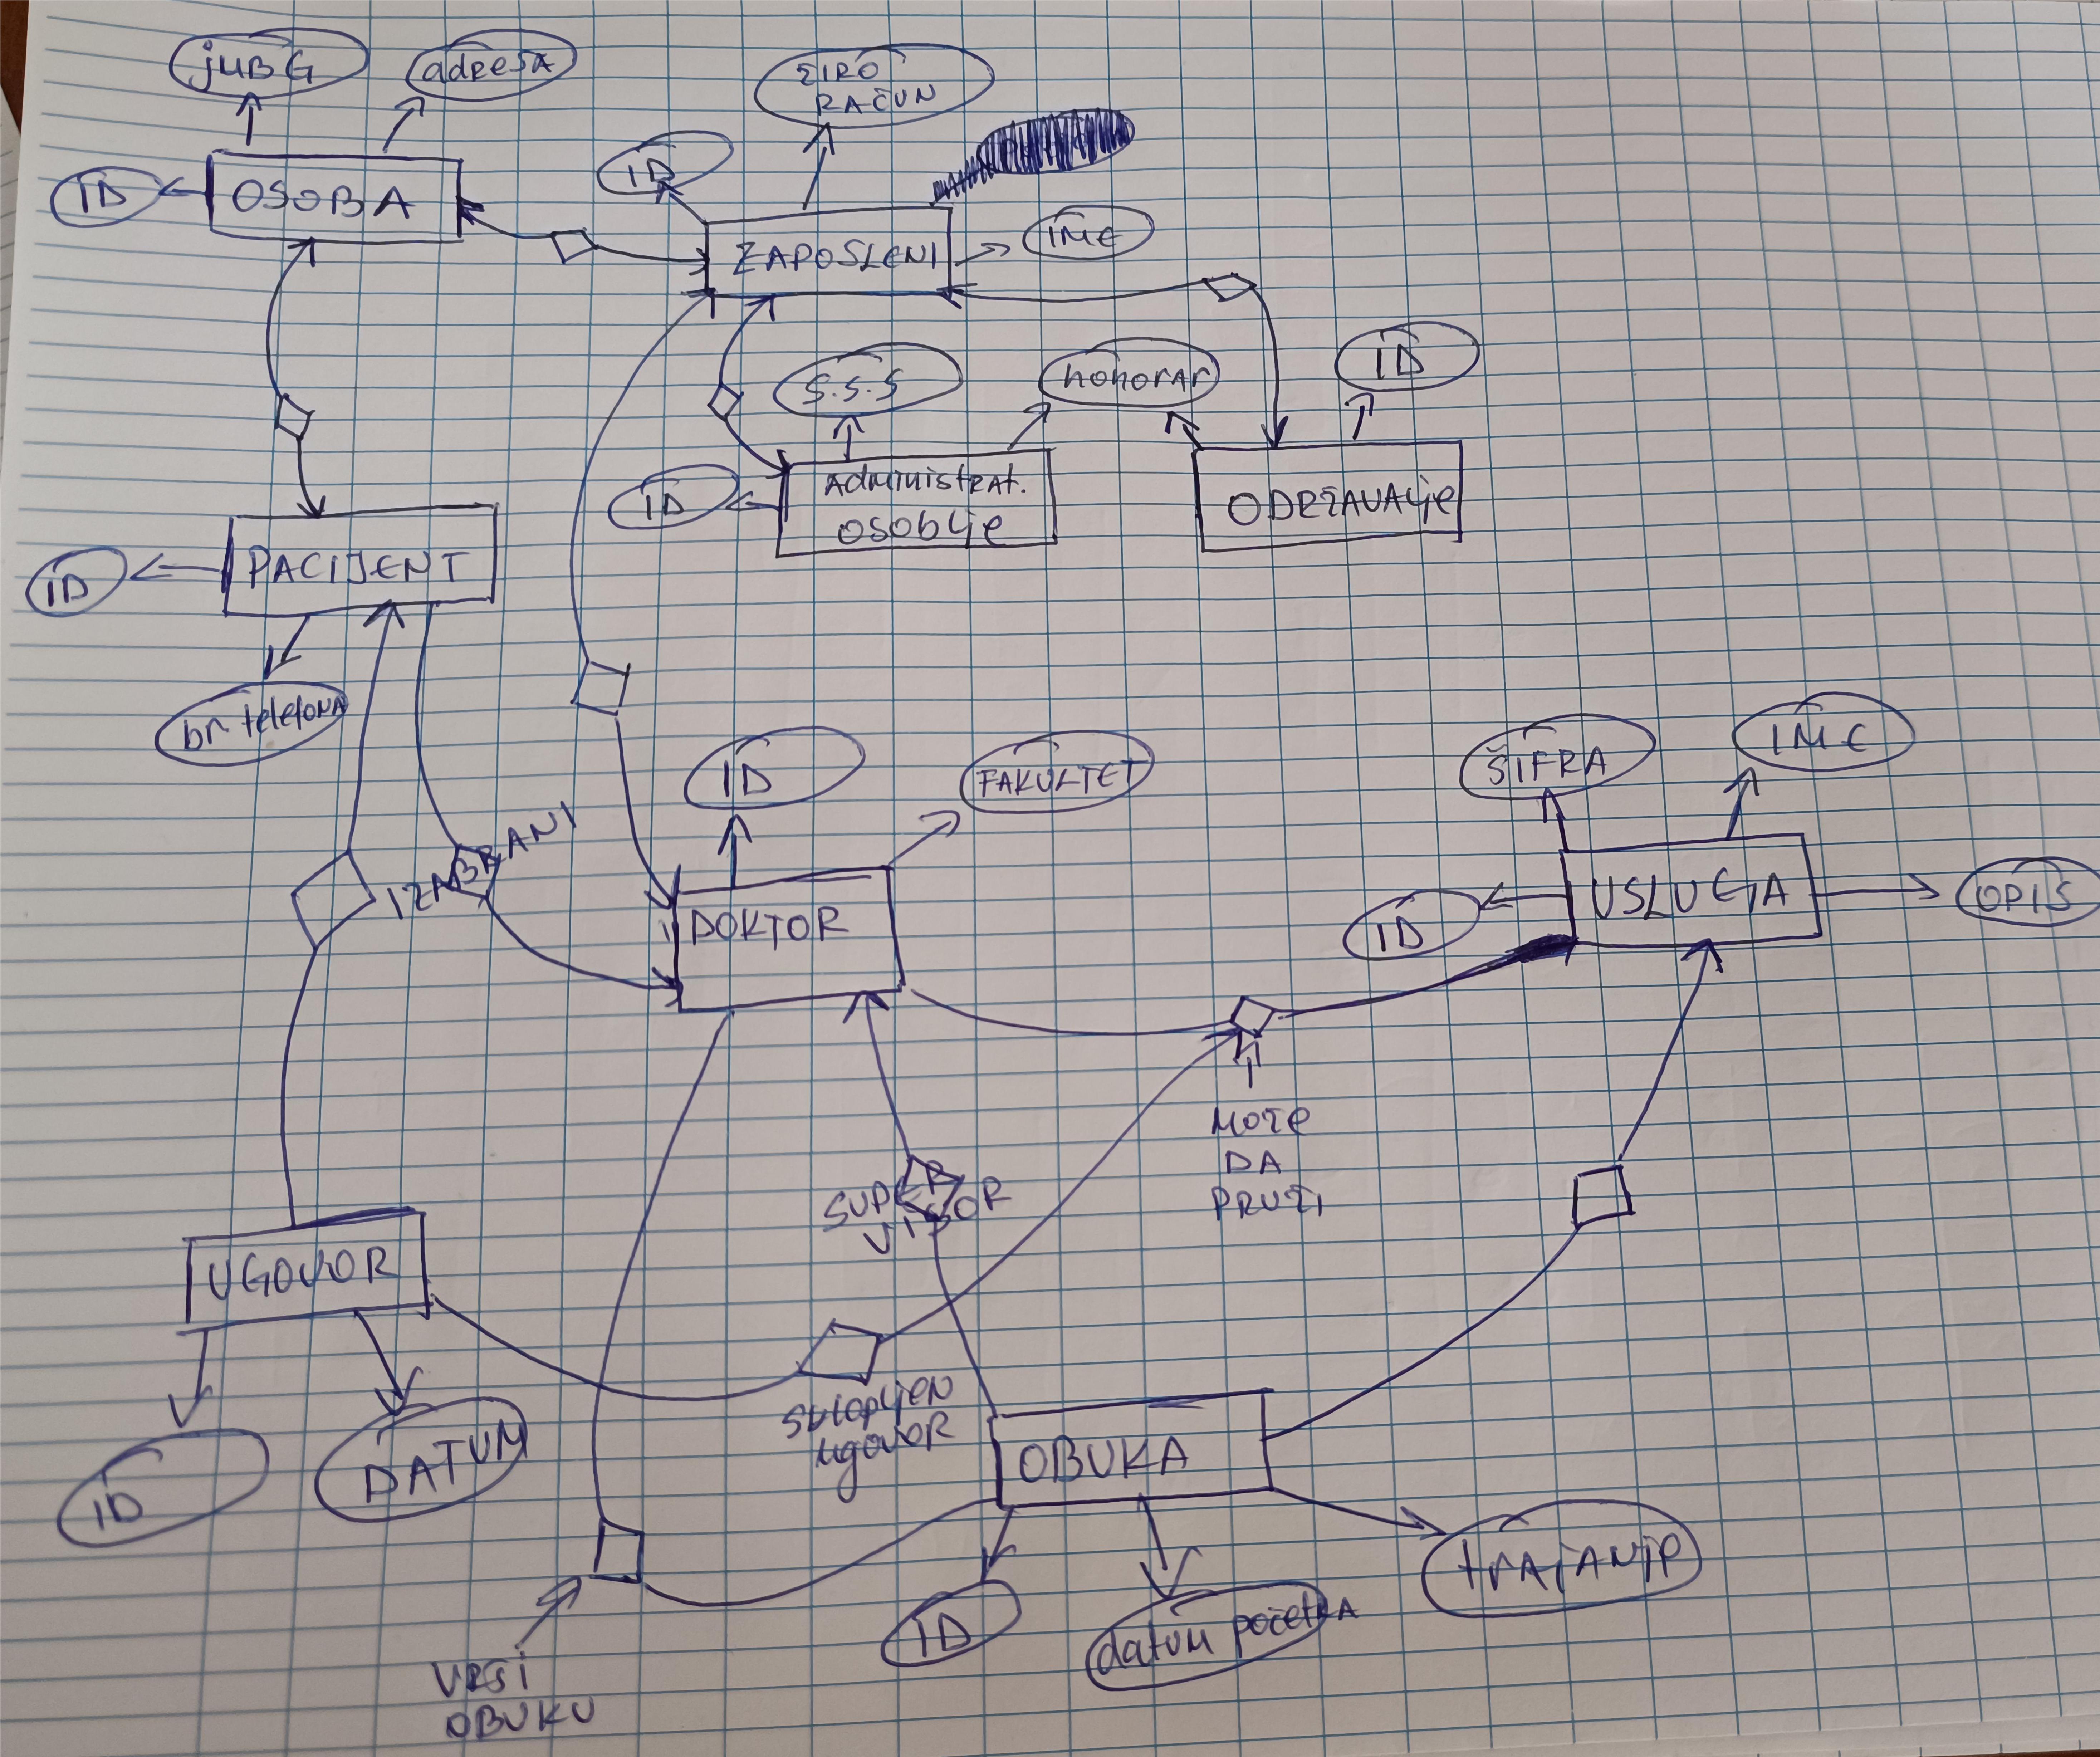 jMBG
adresa
ŽIRO
RAČUN
ID
OSOBA
ID
ZAPOSLENI
IME
S.S.S
honorar
ID
ID
Administrat.
osoblje
ODRŽAVAnje
ID
PACIJENT
br telefona
ID
FAKULTET
ŠIFRA
IME
IZABRANI
DOKTOR
ID
USLUGA
OPIS
MOŽE
DA
PRUŽI
SUPER
VISOR
UGOVOR
sklopljen
ugovor
ID
DATUM
OBUKA
trajanje
ID
datum početka
VRŠI
OBUKU